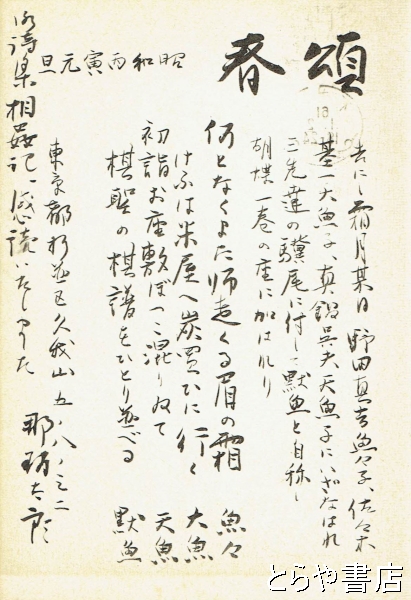 頌春
昭和丙寅元旦
去にし霜月某日 野田真吉魚々子、佐々木
基一大魚子、真鍋呉夫天魚子にいざなはれ
三先達の驥尾に付して黙魚と自称し
胡蝶一巻の座に加はれり
何となくよた師走くる眉の霜 魚々
けふは米屋へ炭買ひに行く 大魚
初詣お座敷ぽつこ混りゐて 天魚
棋聖の棋譜をひとり並べる 黙魚
東京都杉並区久我山五ノ八ノ之二
那珂太郎
詩集相姦記、感読いたしました
とらや書店